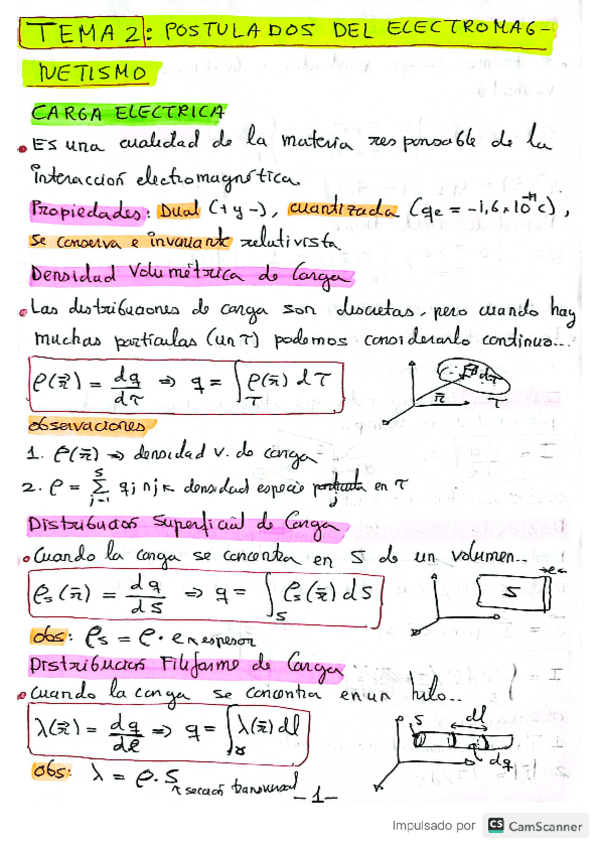 TEMA 2: POSTULADOS DEL ELECTROMAG-
NETISMO
CARGA ELECTRICA
• Es una cualidad de la materia responsable de la
interacción electromagnética.
Propiedades: Dual (+ y -), cuantizada (qe = -1,6·10^-19 C),
se conserva e invariante relativista
Densidad Volumétrica de Carga
• Las distribuciones de carga son discretas, pero cuando hay
muchas partículas (un τ) podemos considerarlo continuo...
ρ(r⃗) = dq/dτ ⇒ q = ∫τ ρ(r⃗) dτ
r⃗ dτ τ
observaciones
1. ρ(r⃗) → densidad v. de carga
2. ρ = Σ(j=1)^S qj nj ← densidad especie en τ
Distribución Superficial de Carga
• Cuando la carga se concentra en S de un volumen..
ρs(r⃗) = dq/dS ⇒ q = ∫S ρs(r⃗) dS
S e
obs: ρs = ρ · e ↖ espesor
Distribución Filiforme de Carga
• Cuando la carga se concentra en un hilo..
λ(r⃗) = dq/dl ⇒ q = ∫γ λ(r⃗) dl
ρ S dl dq
obs: λ = ρ · S ↖ sección transversal
-1-
Impulsado por CS CamScanner